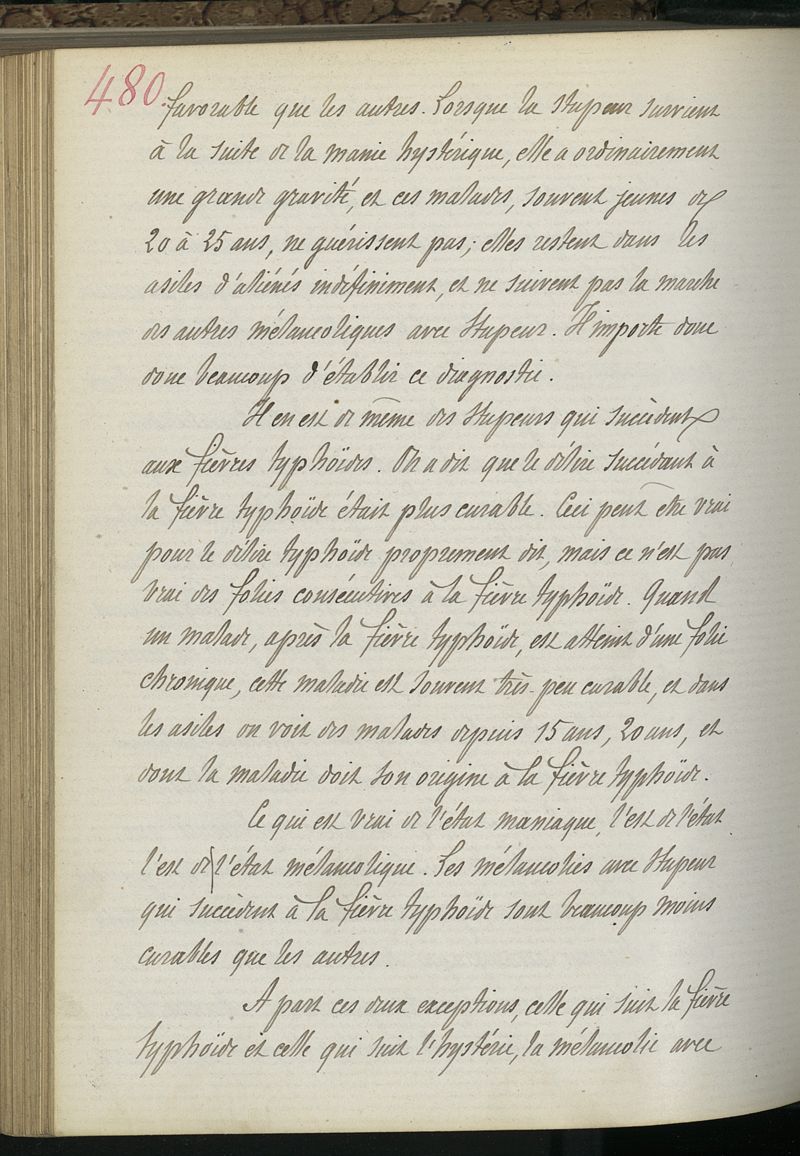 480
favorable que les autres. Lorsque la stupeur survient
à la suite de la manie hystérique, elle a ordinairement
une grande gravité, et ces malades, souvent jeunes de
20 à 25 ans, ne guérissent pas; elles restent dans les
asiles d'aliénés indéfiniment, et ne suivent pas la marche
des autres mélancoliques avec stupeur. Il importe donc
donc beaucoup d'établir ce diagnostic.
Il en est de même des stupeurs qui succèdent
aux fièvres typhoïdes. On a dit que le délire succédant à
la fièvre typhoïde était plus curable. Ceci peut être vrai
pour le délire typhoïde proprement dit, mais ce n'est pas
vrai des folies consécutives à la fièvre typhoïde. Quand
un malade, après la fièvre typhoïde, est atteint d'une folie
chronique, cette maladie est souvent très-peu curable, et dans
les asiles on voit des malades depuis 15 ans, 20 ans, et
dont la maladie doit son origine à la fièvre typhoïde.
Ce qui est vrai de l'état maniaque, l'est de l'état
l'est de l'état mélancolique. Les mélancolies avec stupeur
qui succèdent à la fièvre typhoïde sont beaucoup moins
curables que les autres.
A part ces deux exceptions, celle qui suit la fièvre
typhoïde et celle qui suit l'hystérie, la mélancolie avec